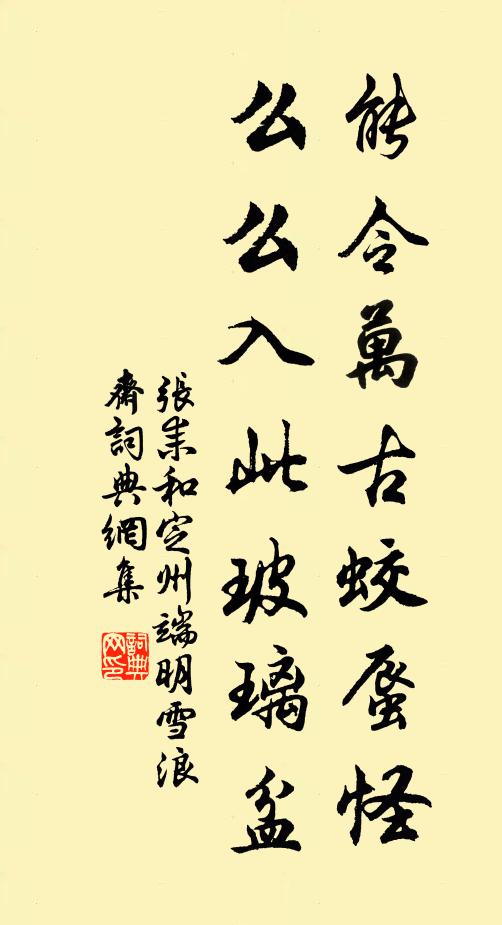 能令萬古蛟蜃怪
幺幺入此玻璃盆
張耒和定州端明雪浪
齋詞典網集
詞典網印